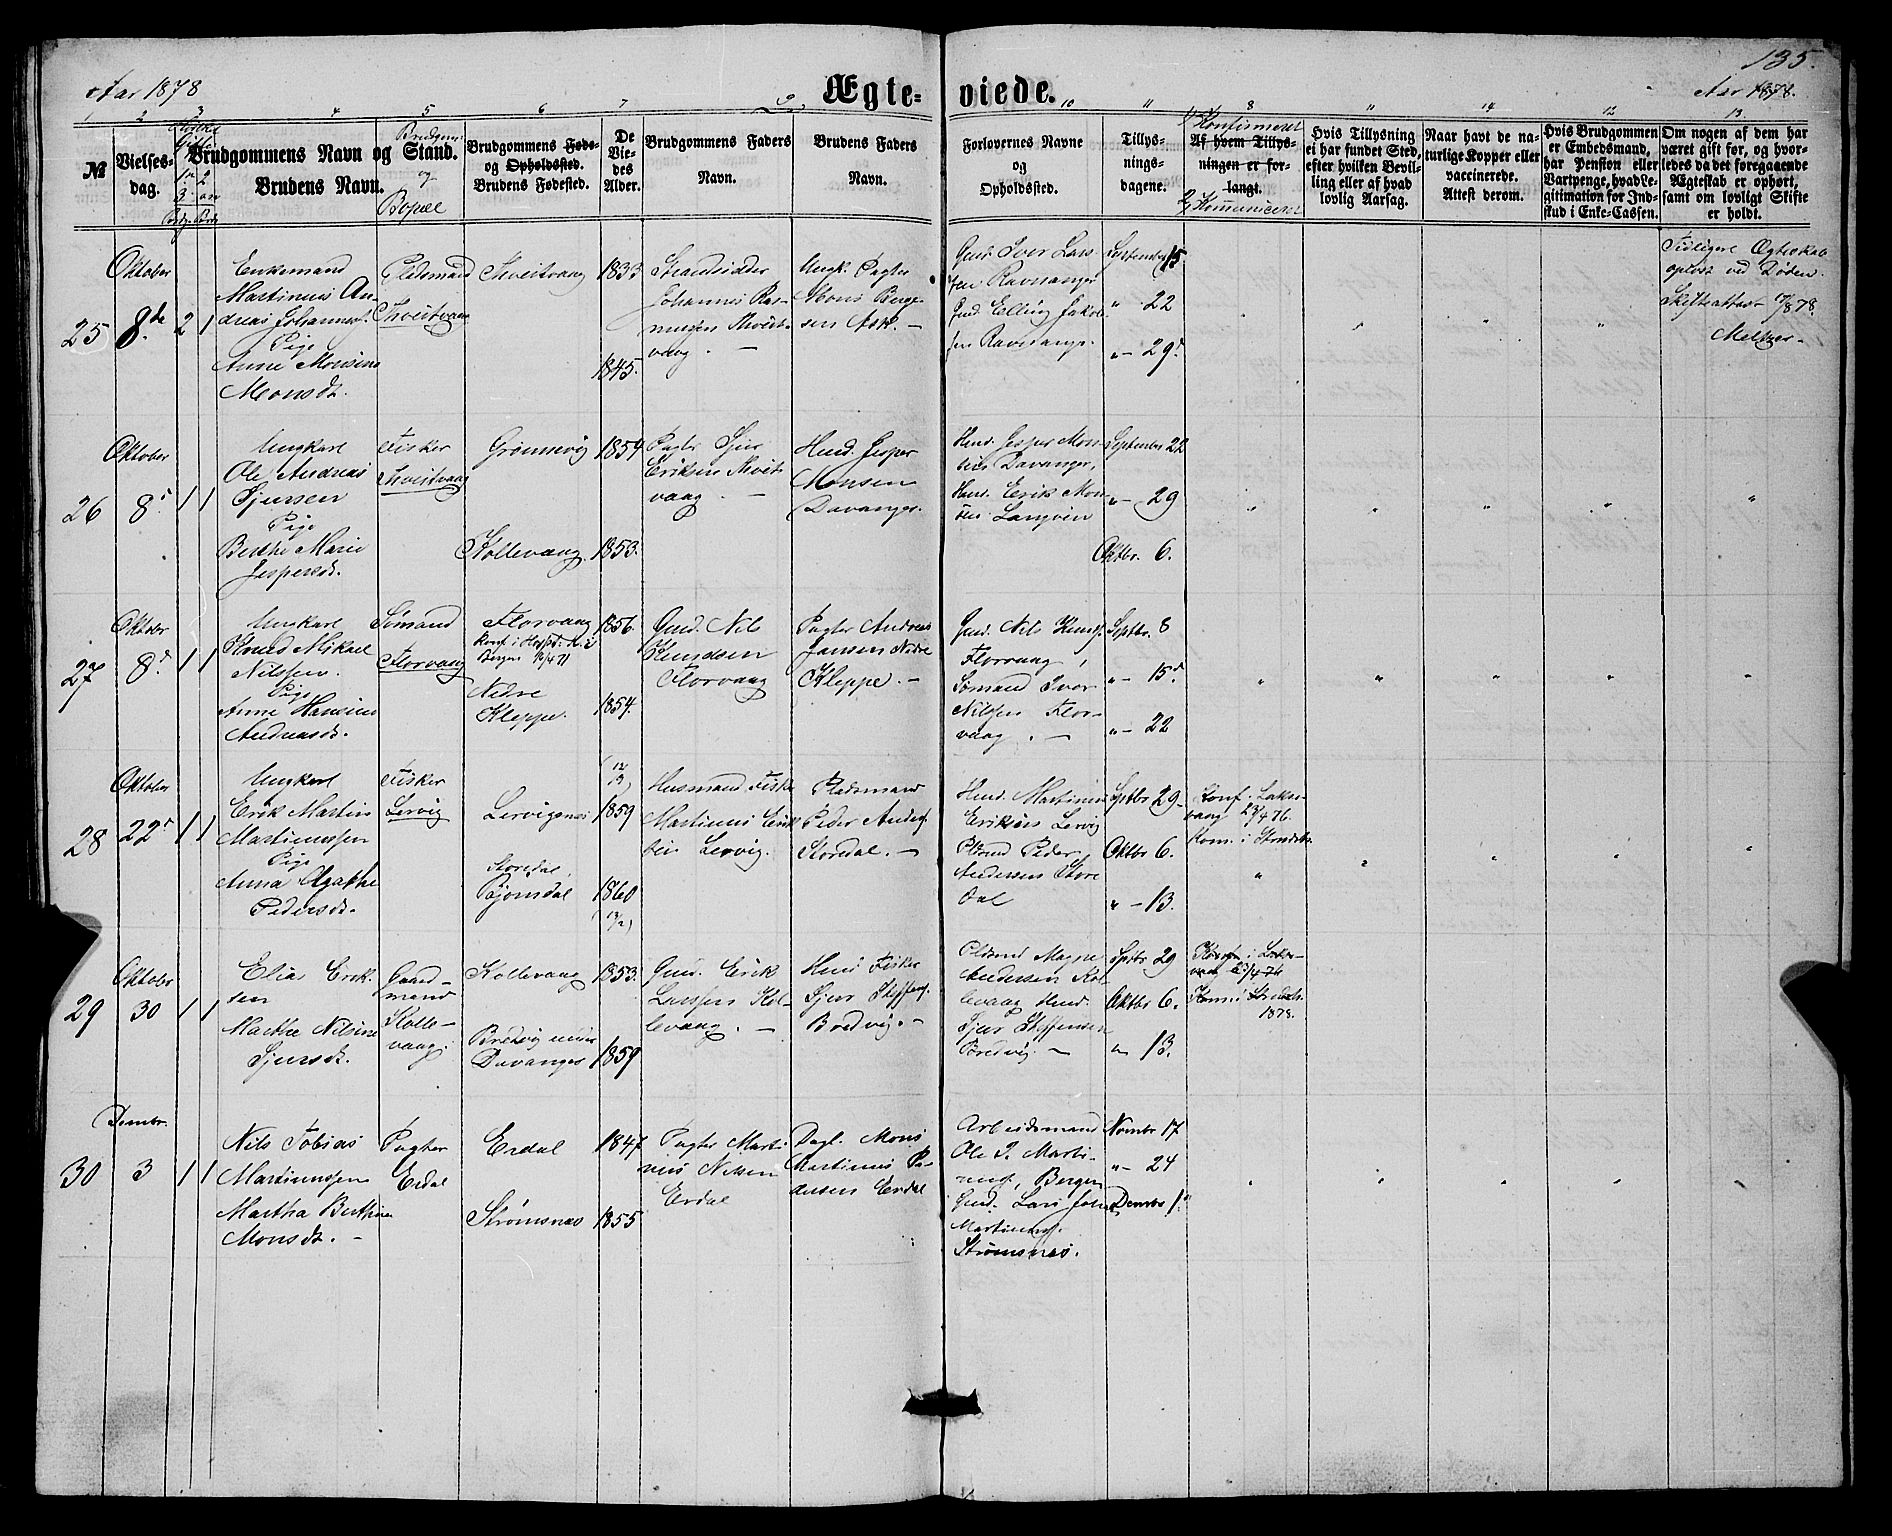 135.
Aar 1878
Ægte-
viede.
Aar 1878.
2 3 4 5 6 7 9 10 " 8 " 14 12 13
№
Vielses-
dag.
1ª 2
Brudgommens Navn og Stand.
Brudens Navn.
og
Bopæl
Brudgommens Føde-
og Opholdssted.
Brudens Fødested.
De
Vie-
des
Alder.
Brudgommens Faders
Navn.
Brudens Faders
Navn.
Forlovernes Navne
og
Opholdssted.
Tillys-
nings-
dagene.
1/ Konfirmeret
Af hvem Tillys-
ningen er for-
langt.
2/ Kommuniceret
Hvis Tillysning
ei har fundet Sted,
efter hvilken Bevil-
ling eller af hvad
lovlig Aarsag.
Naar havt de na-
turlige Kopper eller
vaccinerede.
Attest derom.
Hvis Brudgommen
er Embedsmand,
har Pension eller
Vartpenge, hvad Le-
gitimation for Ind-
skud i Enke-Cassen.
Om nogen af dem har
været gift for, og hvor-
ledes da det foregaaende
Ægteskab er ophørt,
samt om lovligt Skifte
er holdt.
25
Oktober
8.de
2 1
Enkemand
Martinus An-
dreas Johannes.
Pige
Anne Monsine
Monsdt.
Pladsmand
Kveitvaag
Kveitvaag
1833
1845.
Strandsidder
Johannes Ras-
mussen Kveit-
vaag. —
Ungk. Pagter
Mons Berge-
sen Ask. —
Gmd. Iver Lars-
sen Ravnanger
Gmd. Elling Jakob-
sen Ravnanger
September 15.
" 22
" — 29.
Tidligere Ægteskab
opløst ved Døden.
Skifteattest 7/8 78.
Meltzer.
26
Oktober
8.
1 1
Ungkarl
Ole Andreas
Sjursen
Pige
Berthe Marie
Jespersdt.
Fisker
Kveitvaag
Grønnevig
Kollevaag.
1854
1853.
Pagter Sjur
Eriksen Kveit-
vaag. —
Husd. Jesper
Monsen
Davanger.
Husd. Jesper Mon-
sen Davanger,
Husd. Erik Mon-
sen
September 22
" — 29
Oktbr. 6.
27
Oktober
8.
1 1
Ungkarl
Knud Mikael
Nilssen.
Pige
Anne Hansine
Andreasdt.
Sømand
Florvaag
Florvaag
Konf. i
Bergen
Nedre
Kleppe.
1856.
1854.
Gmd. Nils
Knudsen
Florvaag
Pagter Andreas
Jansen Nedre
Kleppe. —
Gmd. Nils Knuds.
Florvaag,
Sømand Iver
Nilsen Flor-
vaag. —
Septbr. 8
" — 15.
" — 22
28
Oktober
22.
1 1
Ungkarl
Erik Martin
Martinussen
Pige
Anna Agathe
Pedersdt.
Fisker
Lervig
Lervignes
Storedal,
Bjørnsdal
1859
1860
Husmand Fisker
Martinus Erik-
sen Lervig.
Pladsmand
Peder Anders.
Storedal. —
Husd. Martinus
Eriksen Lervig
Peder
Andersen Store
Dal
Septbr 29
Oktbr 6.
" — 13.
Konf. i Laks-
vaag 23/4 76.
Kom. i
29
Oktober
30
1 1
Elias Erik-
sen
Marthe Nilsine
Sjursdt.
Gaard-
mand
Kolle-
vaag.
Kollevaag
Bredvig under
Davanger
1853.
1859
Gmd. Erik
Larssen Kol-
levaag. —
Husd Fisker
Sjur Steffens.
Bredvig. —
Magne
Andersen Kol-
levaag Husd.
Sjur Steffensen
Bredvig. —
Septbr 29
Oktbr 6.
" 13.
Konf. i Laks-
vaag 23/4 74
Kom i
1878.
30
Decmbr.
3
1 1
Nils Tobias
Martinussen
Martha Berthine
Monsdt. —
Pagter
Erdal
Erdal
Strømsnæs
1847
1855
Pagter Marti-
nus Nilsen
Erdal
Dagl. Mons
Martinus Pe-
dersen Erdal
Arbeidsmand
Ole J. Marti-
nus., Bergen
Gmd. Lars Johan
Martinus.
Strømsnæs.
Novmbr 17
" — 24
Decmbr 1.